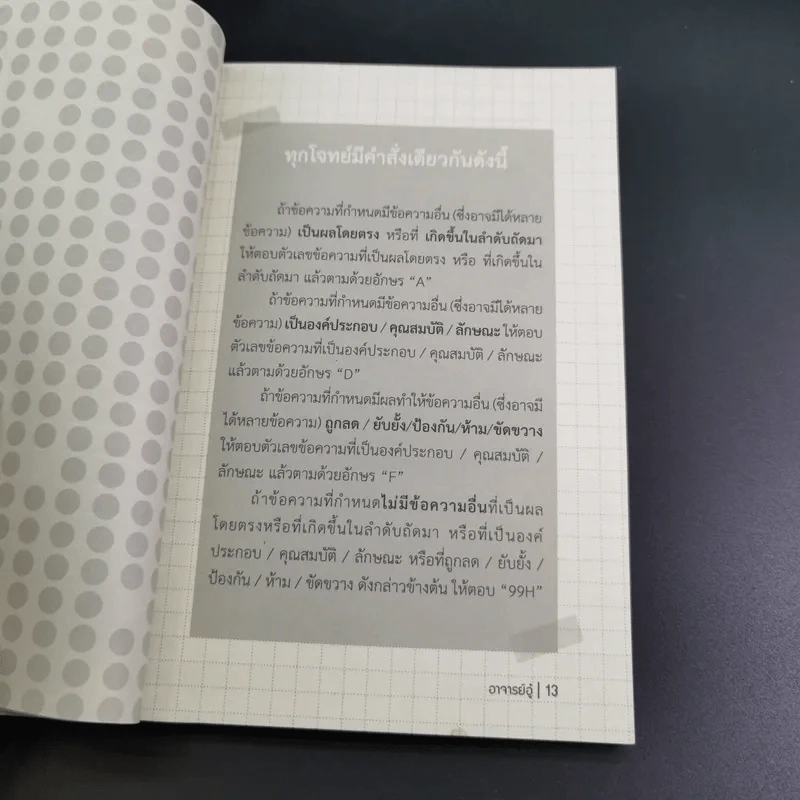 ทุกโจทย์มีคำสั่งเดียวกันดังนี้
ถ้าข้อความที่กำหนดมีข้อความอื่น (ซึ่งอาจมีได้หลาย
ข้อความ) เป็นผลโดยตรง หรือที่ เกิดขึ้นในลำดับถัดมา
ให้ตอบตัวเลขข้อความที่เป็นผลโดยตรง หรือ ที่เกิดขึ้นใน
ลำดับถัดมา แล้วตามด้วยอักษร “A”
ถ้าข้อความที่กำหนดมีข้อความอื่น (ซึ่งอาจมีได้หลาย
ข้อความ) เป็นองค์ประกอบ / คุณสมบัติ / ลักษณะ ให้ตอบ
ตัวเลขข้อความที่เป็นองค์ประกอบ / คุณสมบัติ / ลักษณะ
แล้วตามด้วยอักษร “D”
ถ้าข้อความที่กำหนดมีผลทำให้ข้อความอื่น (ซึ่งอาจมี
ได้หลายข้อความ) ถูกลด / ยับยั้ง/ป้องกัน/ห้าม/ขัดขวาง
ให้ตอบตัวเลขข้อความที่เป็นองค์ประกอบ / คุณสมบัติ /
ลักษณะ แล้วตามด้วยอักษร “F”
ถ้าข้อความที่กำหนดไม่มีข้อความอื่นที่เป็นผล
โดยตรงหรือที่เกิดขึ้นในลำดับถัดมา หรือที่เป็นองค์
ประกอบ / คุณสมบัติ / ลักษณะ หรือที่ถูกลด / ยับยั้ง /
ป้องกัน / ห้าม / ขัดขวาง ดังกล่าวข้างต้น ให้ตอบ “99H”
อาจารย์อู๋ | 13